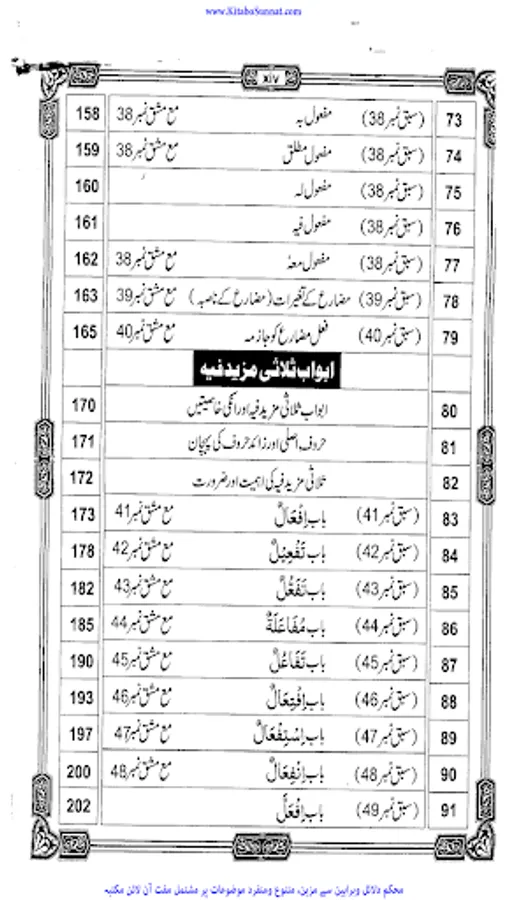 www.KitaboSunnat.com
xiv
73 (سبق نمبر 38) مفعول بہ مع مشق نمبر 38 158
74 (سبق نمبر 38) مفعول مطلق مع مشق نمبر 38 159
75 (سبق نمبر 38) مفعول لہ 160
76 (سبق نمبر 38) مفعول فیہ 161
77 (سبق نمبر 38) مفعول معہٗ مع مشق نمبر 38 162
78 (سبق نمبر 39) مضارع کے تغیرات (مضارع کے ناصبہ) مع مشق نمبر 39 163
79 (سبق نمبر 40) فعل مضارع کو جازمہ مع مشق نمبر 40 165
ابواب ثلاثی مزید فیہ
80 ابواب ثلاثی مزید فیہ اور انکی خاصیتیں 170
81 حروف اصلی اور زائد حروف کی پہچان 171
82 ثلاثی مزید فیہ کی اہمیت اور ضرورت 172
83 (سبق نمبر 41) باب اِفْعَالٌ مع مشق نمبر 41 173
84 (سبق نمبر 42) باب تَفْعِیْلٌ مع مشق نمبر 42 178
85 (سبق نمبر 43) باب تَفَعُّلٌ مع مشق نمبر 43 182
86 (سبق نمبر 44) باب مُفَاعَلَةٌ مع مشق نمبر 44 185
87 (سبق نمبر 45) باب تَفَاعُلٌ مع مشق نمبر 45 190
88 (سبق نمبر 46) باب اِفْتِعَالٌ مع مشق نمبر 46 193
89 (سبق نمبر 47) باب اِسْتِفْعَالٌ مع مشق نمبر 47 197
90 (سبق نمبر 48) باب اِنْفِعَالٌ مع مشق نمبر 48 200
91 (سبق نمبر 49) باب اِفْعَلٌّ 202
محکم دلائل وبراہین سے مزین، متنوع ومنفرد موضوعات پر مشتمل مفت آن لائن مکتبہ